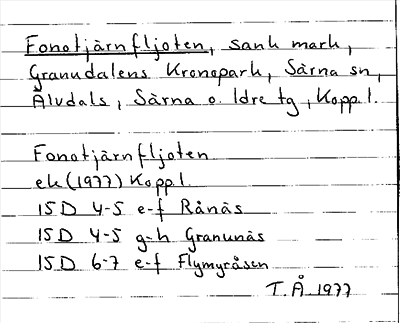 Fonotjärnfljoten, sank mark,
Granudalens Kronopark, Särna sn,
Älvdals, Särna o. Idre tg, Kopp.l.
Fonotjärnfljoten
ek (1977) Kopp.l.
15D 4-5 e-f Rånäs
15D 4-5 g-h Granunäs
15D 6-7 e-f Flymyråsen
T.Å 1977